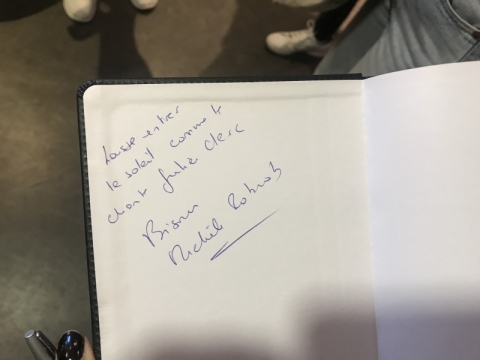 Laisse entrer
le soleil comme le
chant Julien Clerc
Bisous
Michèle